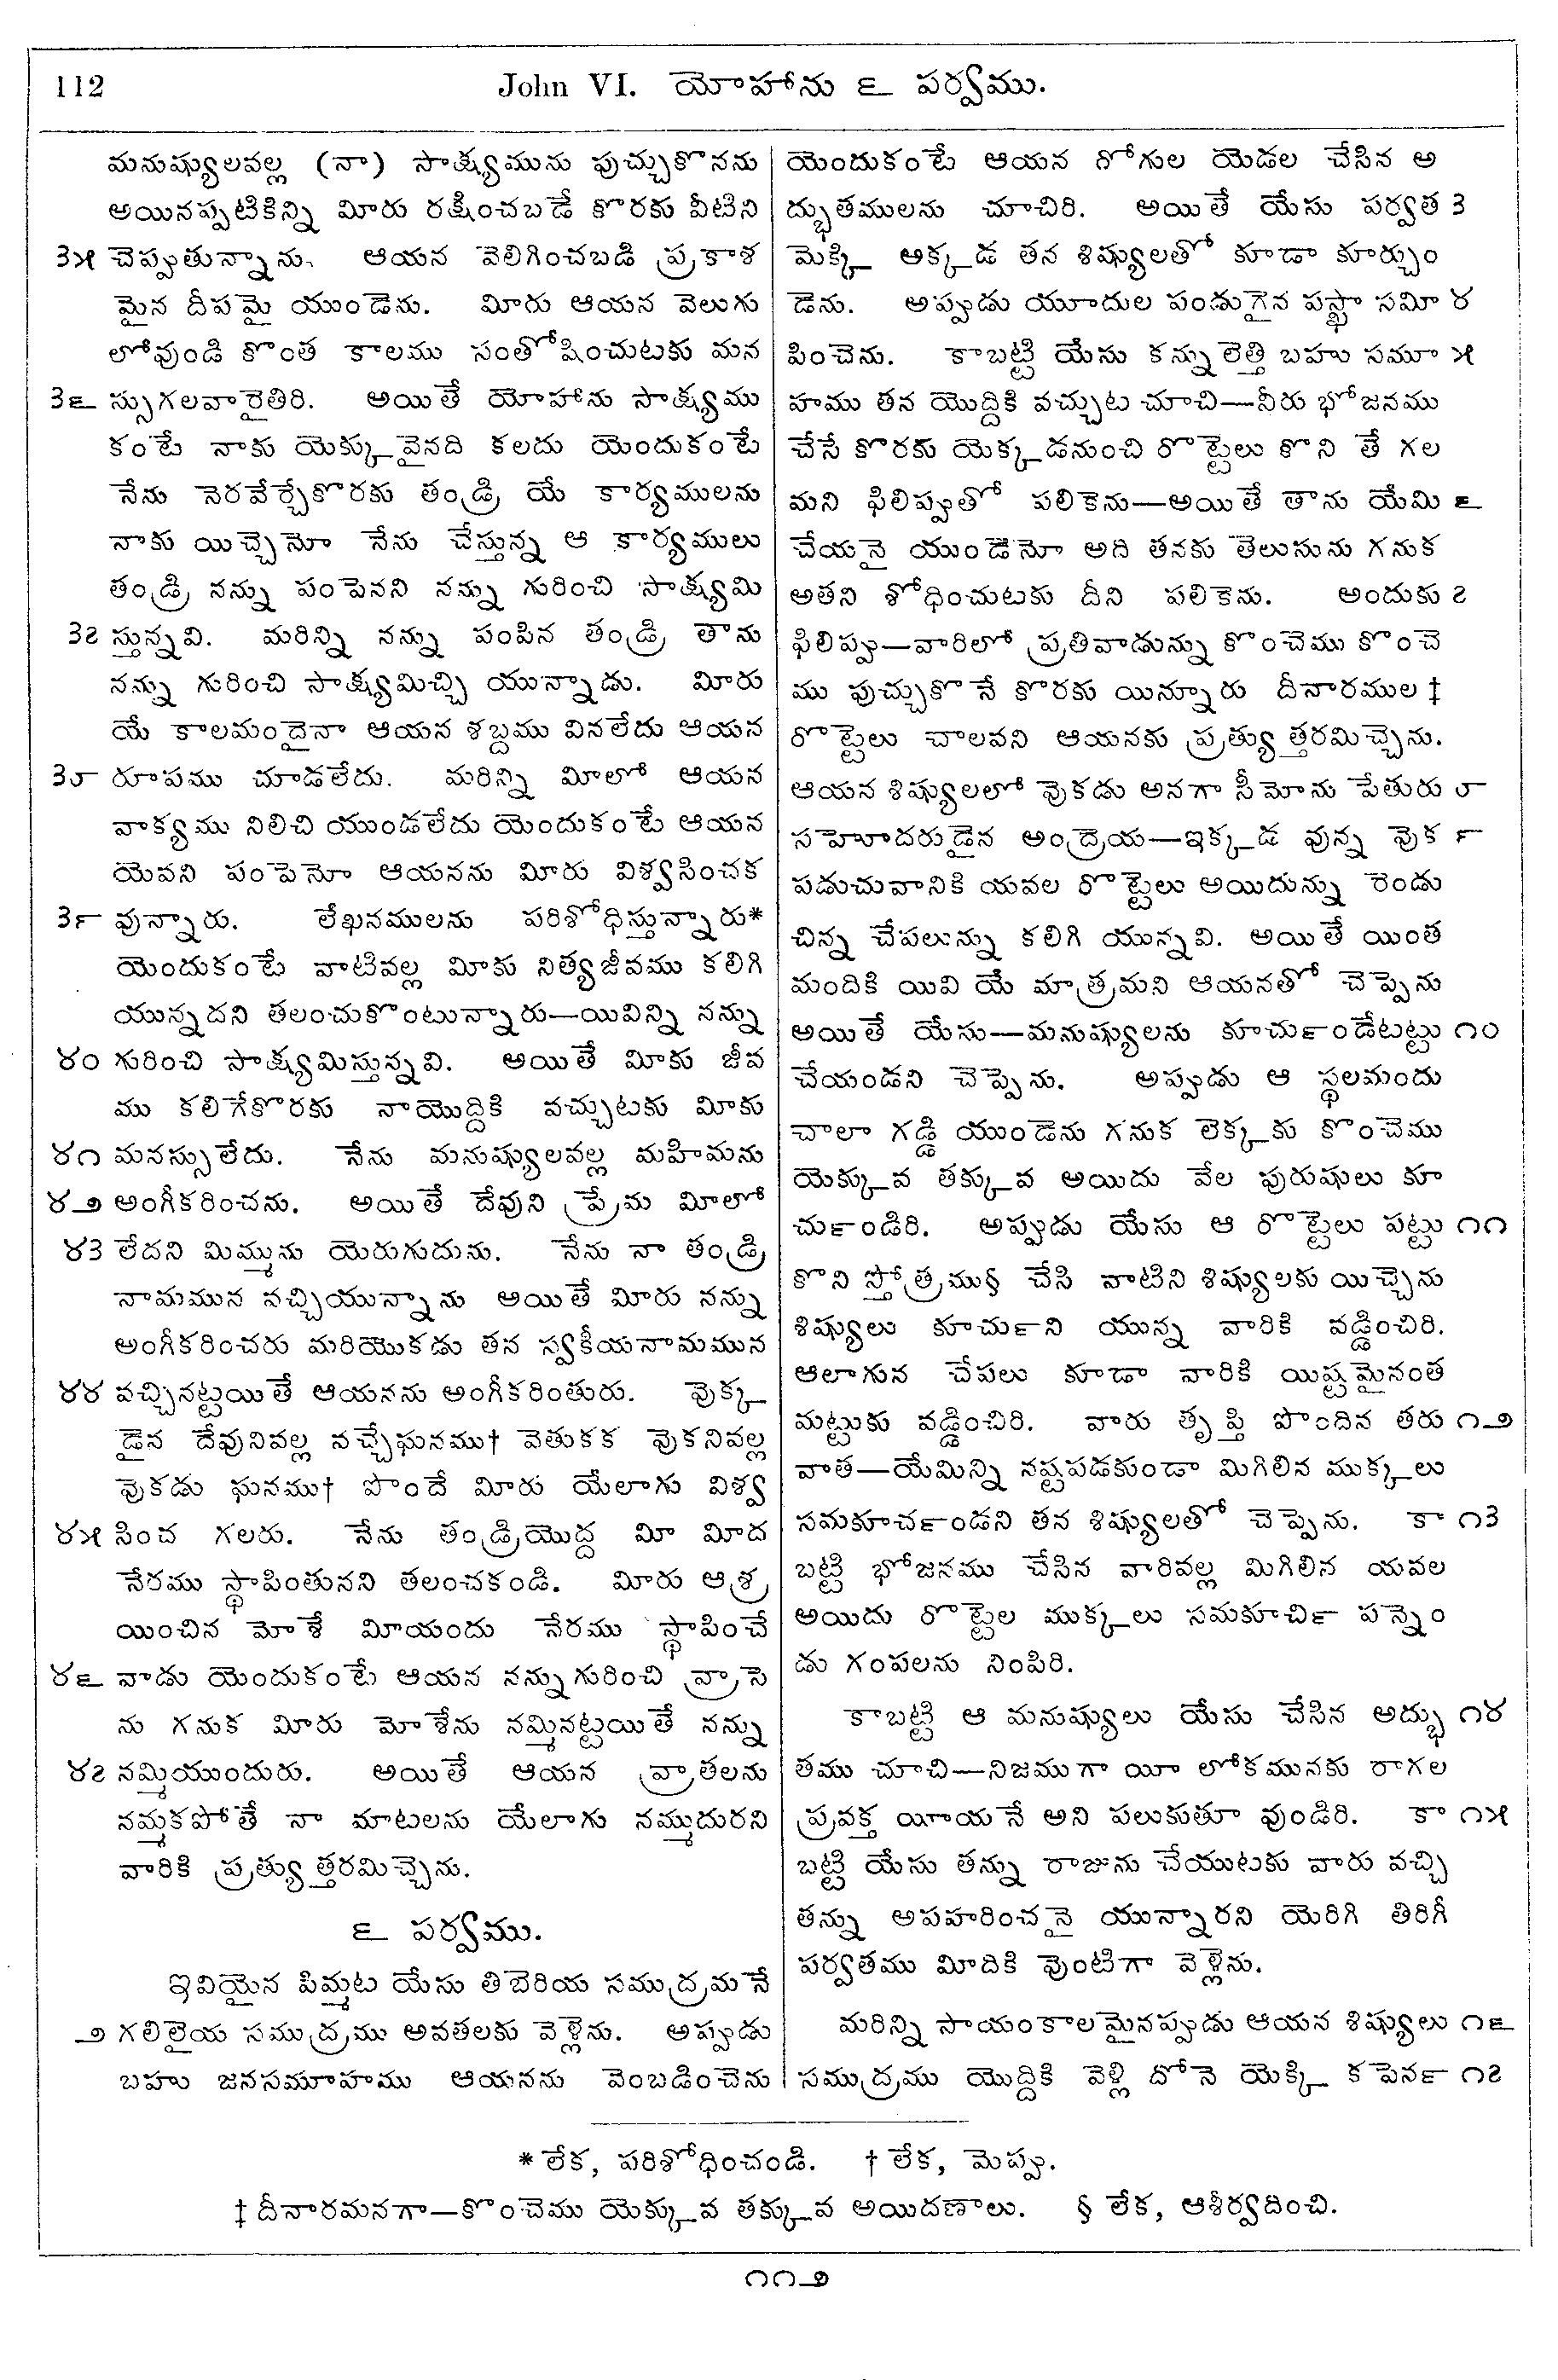 112
John VI. యోహాను ౬ పర్వము.
మనుష్యులవల్ల (నా) సాక్ష్యమును పుచ్చుకొనను
అయినప్పటికిన్ని మీరు రక్షించబడే కొరకు వీటిని
౩౫ చెప్పుతున్నాను. ఆయన వెలిగించబడి ప్రకాశ
మైన దీపమై యుండెను. మీరు ఆయన వెలుగు
లోవుండి కొంత కాలము సంతోషించుటకు మన
౩౬ స్సుగలవారైతిరి. అయితే యోహాను సాక్ష్యము
కంటే నాకు యెక్కువైనది కలదు యెందుకంటే
నేను నెరవేర్చేకొరకు తండ్రి యే కార్యములను
నాకు యిచ్చెనో నేను చేస్తున్న ఆ కార్యములు
తండ్రి నన్ను పంపెనని నన్ను గురించి సాక్ష్యమి
౩౭ స్తున్నవి. మరిన్ని నన్ను పంపిన తండ్రి తాను
నన్ను గురించి సాక్ష్యమిచ్చి యున్నాడు. మీరు
యే కాలమందైనా ఆయన శబ్దము వినలేదు ఆయన
౩౮ రూపము చూడలేదు. మరిన్ని మీలో ఆయన
వాక్యము నిలిచి యుండలేదు యెందుకంటే ఆయన
యెవని పంపెనో ఆయనను మీరు విశ్వసించక
౩౯ వున్నారు. లేఖనములను పరిశోధిస్తున్నారు*
యెందుకంటే వాటివల్ల మీకు నిత్యజీవము కలిగి
యున్నదని తలంచుకొంటున్నారు—యివిన్ని నన్ను
౪౦ గురించి సాక్ష్యమిస్తున్నవి. అయితే మీకు జీవ
ము కలిగేకొరకు నాయొద్దికి వచ్చుటకు మీకు
౪౧ మనస్సులేదు. నేను మనుష్యులవల్ల మహిమను
౪౨ అంగీకరించను. అయితే దేవుని ప్రేమ మీలో
౪౩ లేదని మిమ్మును యెరుగుదును. నేను నా తండ్రి
నామమున వచ్చియున్నాను అయితే మీరు నన్ను
అంగీకరించరు మరియొకడు తన స్వకీయనామమున
౪౪ వచ్చినట్టయితే ఆయనను అంగీకరింతురు. వుెక్క
డైన దేవునివల్ల వచ్చేఘనము† వెతుకక వుెకనివల్ల
వుెకడు ఘనము† పొందే మీరు యేలాగు విశ్వ
౪౫ సించ గలరు. నేను తండ్రియొద్ద మీ మీద
నేరము స్థాపింతునని తలంచకండి. మీరు ఆశ్ర
యించిన మోశే మీయందు నేరము స్థాపించే
౪౬ వాడు యెందుకంటే ఆయన నన్నుగురించి వ్రాసె
ను గనుక మీరు మోశేను నమ్మినట్టయితే నన్ను
౪౭ నమ్మియుందురు. అయితే ఆయన వ్రాతలను
నమ్మకపోతే నా మాటలను యేలాగు నమ్ముదురని
వారికి ప్రత్యుత్తరమిచ్చెను.
౬ పర్వము.
ఇవియైన పిమ్మట యేసు తిబెరియ సముద్రమనే
౨ గలిలైయ సముద్రము అవతలకు వెళ్లెను. అప్పుడు
బహు జనసమూహము ఆయనను వెంబడించెను
యెందుకంటే ఆయన రోగుల యెడల చేసిన అ
ద్భుతములను చూచిరి. అయితే యేసు పర్వత ౩
మెక్కి అక్కడ తన శిష్యులతో కూడా కూర్చుం
డెను. అప్పుడు యూదుల పండుగైన పస్ఖా సమీ ౪
పించెను. కాబట్టి యేసు కన్నులెత్తి బహు సమూ ౫
హము తన యొద్దికి వచ్చుట చూచి—వీరు భోజనము
చేసే కొరకు యెక్కడనుంచి రొట్టెలు కొని తే గల
మని ఫిలిప్పుతో పలికెను—అయితే తాను యేమి ౬
చేయనై యుండెనో అది తనకు తెలుసును గనుక
అతని శోధించుటకు దీని పలికెను. అందుకు ౭
ఫిలిప్పు—వారిలో ప్రతివాడున్ను కొంచెము కొంచె
ము పుచ్చుకొనే కొరకు యిన్నూరు దీనారముల ‡
రొట్టెలు చాలవని ఆయనకు ప్రత్యుత్తరమిచ్చెను.
ఆయన శిష్యులలో వుెకడు అనగా సీమోను పేతురు ౮
సహోదరుడైన అంద్రెయ—ఇక్కడ వున్న వుెక ౯
పడుచువానికి యవల రొట్టెలు అయిదున్ను రెండు
చిన్న చేపలున్ను కలిగి యున్నవి. అయితే యింత
మందికి యివి యే మాత్రమని ఆయనతో చెప్పెను
అయితే యేసు—మనుష్యులను కూచుꣳండేటట్టు ౧౦
చేయండని చెప్పెను. అప్పుడు ఆ స్థలమందు
చాలా గడ్డి యుండెను గనుక లెక్కకు కొంచెము
యెక్కువ తక్కువ అయిదు వేల పురుషులు కూ
చుర్ండిరి. అప్పుడు యేసు ఆ రొట్టెలు పట్టు ౧౧
కొని స్తోత్రము§ చేసి వాటిని శిష్యులకు యిచ్చెను
శిష్యులు కూచుర్ని యున్న వారికి వడ్డించిరి.
ఆలాగున చేపలు కూడా వారికి యిష్టమైనంత
మట్టుకు వడ్డించిరి. వారు తృప్తి పొందిన తరు ౧౨
వాత—యేమిన్ని నష్టపడకుండా మిగిలిన ముక్కలు
సమకూచర్ండని తన శిష్యులతో చెప్పెను. కా ౧౩
బట్టి భోజనము చేసిన వారివల్ల మిగిలిన యవల
అయిదు రొట్టెల ముక్కలు సమకూచిర్ పన్నెం
డు గంపలను నింపిరి.
కాబట్టి ఆ మనుష్యులు యేసు చేసిన అద్భు ౧౪
తము చూచి—నిజముగా యీ లోకమునకు రాగల
ప్రవక్త యీయనే అని పలుకుతూ వుండిరి. కా ౧౫
బట్టి యేసు తన్ను రాజును చేయుటకు వారు వచ్చి
తన్ను అపహరించనై యున్నారని యెరిగి తిరిగీ
పర్వతము మీదికి వుెంటిగా వెళ్లెను.
మరిన్ని సాయంకాలమైనప్పుడు ఆయన శిష్యులు ౧౬
సముద్రము యొద్దికి వెళ్లి దోనె యెక్కి కపెనర్ ౧౭
* లేక, పరిశోధించండి. † లేక, మెప్పు.
‡ దీనారమనగా—కొంచెము యెక్కువ తక్కువ అయిదణాలు. § లేక, ఆశీర్వదించి.
౧౧౨